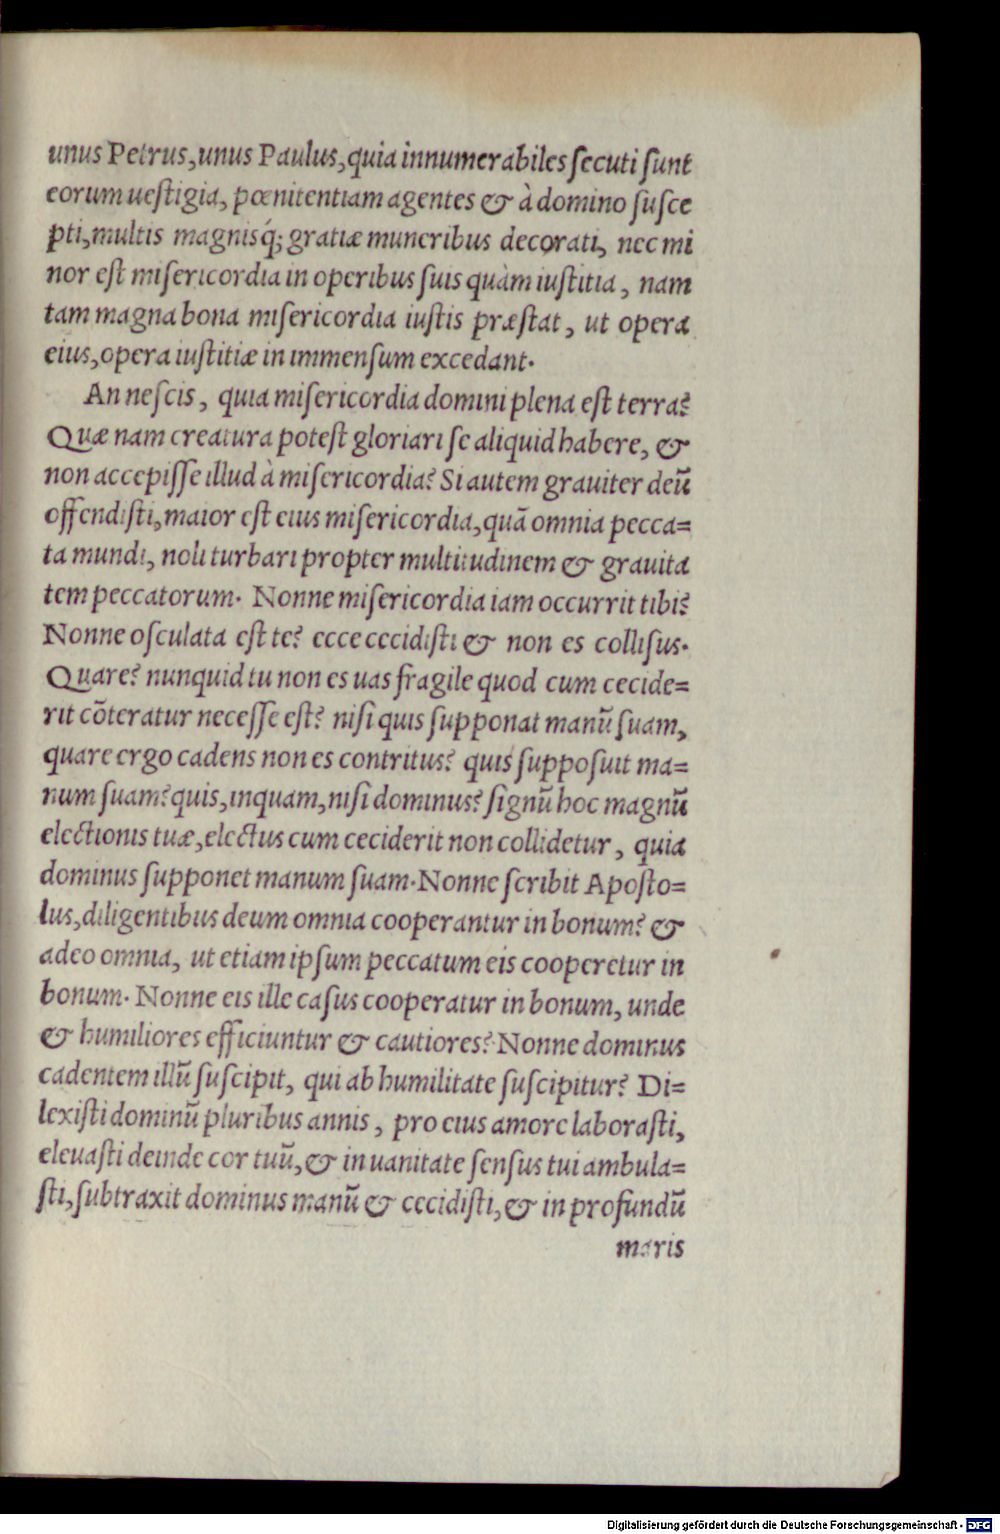 unus Petrus, unus Paulus, quia innumerabiles ſecuti ſunt
eorum ueſtigia, pœnitentiam agentes & à domino ſuſce
pti, multis magnisq́; gratiæ muneribus decorati, nec mi
nor eſt miſericordia in operibus ſuis quàm iuſtitia, nam
tam magna bona miſericordia iuſtis præſtat, ut opera
eius, opera iuſtitiæ in immenſum excedant.
An neſcis, quia miſericordia domini plena eſt terra?
Quæ nam creatura poteſt gloriari ſe aliquid habere, &
non accepiſſe illud à miſericordia? Si autem grauiter deū
offendiſti, maior eſt eius miſericordia, quā omnia pecca=
ta mundi, noli turbari propter multitudinem & grauita
tem peccatorum. Nonne miſericordia iam occurrit tibi?
Nonne oſculata eſt te? ecce cecidiſti & non es colliſus.
Quare? nunquid tu non es uas fragile quod cum cecide=
rit cōteratur neceſſe eſt? niſi quis ſupponat manū ſuam,
quare ergo cadens non es contritus? quis ſuppoſuit ma=
num ſuam? quis, inquam, niſi dominus? ſignū hoc magnū
electionis tuæ, electus cum ceciderit non collidetur, quia
dominus ſupponet manum ſuam. Nonne ſcribit Apoſto=
lus, diligentibus deum omnia cooperantur in bonum? &
adeo omnia, ut etiam ipſum peccatum eis cooperetur in
bonum. Nonne eis ille caſus cooperatur in bonum, unde
& humiliores efficiuntur & cautiores? Nonne dominus
cadentem illū ſuſcipit, qui ab humilitate ſuſcipitur? Di=
lexiſti dominū pluribus annis, pro eius amore laboraſti,
eleuaſti deinde cor tuū, & in uanitate ſenſus tui ambula=
ſti, ſubtraxit dominus manū & cecidiſti, & in profundū
maris
Digitalisierung gefördert durch die Deutsche Forschungsgemeinschaft - DFG